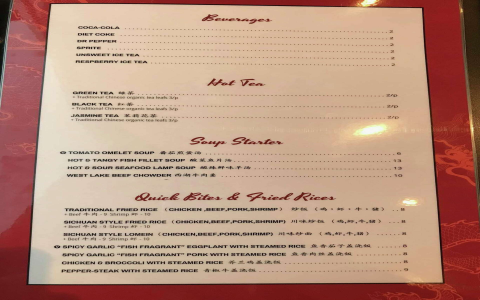 Beverages
COCA-COLA
DIET COKE 2
DR PEPPER 2
SPRITE 2
UNSWEET ICE TEA 2
RESPBERRY ICE TEA 2
Hot Tea
GREEN TEA 綠茶 2/p
• Traditional Chinese organic tea leafs 2/p
BLACK TEA 紅茶 2/p
• Traditional Chinese organic tea leafs 2/p
JASMINE TEA 茉莉花茶 2/p
Soup Starter
TOMATO OMELET SOUP 番茄煎蛋湯 6
HOT & TANGY FISH FILLET SOUP 酸菜魚片湯 13
HOT & SOUR SEAFOOD LAMP SOUP 酸辣 13
WEST LAKE BEEF CHOWDER 西湖牛肉羹 10
Quick Bites & Fried Rices
TRADITIONAL FRIED RICE (CHICKEN,BEEF,PORK,SHRIMP) 炒飯 (鸡，卸，牛，猪) 8
• Beef 牛肉 - 9 Shrimp 虾 - 10
SICHUAN STYLE FRIED RICE (CHICKEN,BEEF,PORK,SHRIMP) 川味炒飯 8
• Beef 牛肉 - 9 Shrimp 虾 - 10
SICHUAN STYLE LOMEIN (CHICKEN,BEEF,PORK,SHRIMP) 川味炒面 8
• Beef 牛肉 - 9 Shrimp 虾 - 10
SPICY GARLIC "FISH FRAGRANT" EGGPLANT WITH STEAMED RICE 魚香茄子蓋浇飯 8
SPICY GARLIC "FISH FRAGRANT" PORK WITH STEAMED RICE 魚香肉丝蓋浇飯 8
CHICKEN & BROCCOLI WITH STEAMED RICE 芥兰鸡蓋浇飯 8
PEPPER-STEAK WITH STEAMED RICE 青椒牛蓋浇飯 9